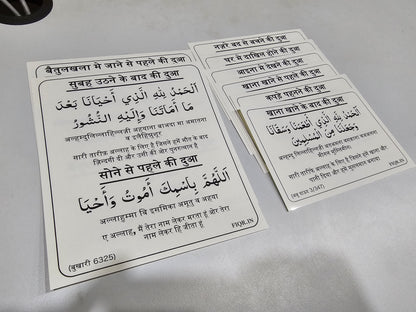 बैतुलखला में जाने से पहले की दुआ
सुबह उठने के बाद की दुआ
اَلْحَمْدُ لِلّٰهِ الَّذِي أَحْيَانَا بَعْدَ
مَا أَمَاتَنَا وَإِلَيْهِ النُّشُورُ
अल्हम्दुलिल्लाहिल्लज़ी अहयाना बाअदा मा अमातना
व इलैहिन्नुशूर
सारी तारीफ़ अल्लाह के लिए है जिसने हमें मौत के बाद
ज़िन्दगी दी और उसी की ओर पुनरुत्थान है
सोने से पहले की दुआ
اَللّٰهُمَّ بِاسْمِكَ أَمُوتُ وَأَحْيَا
अल्लाहुम्मा बि इसमिका अमूतु व अहया
ए अल्लाह, मैं तेरा नाम लेकर मरता हूं और तेरा
नाम लेकर हि जीता हूं
(बुखारी 6325)
FIQR.IN
नज़र बद से बचने की दुआ
घर में दाखिल होने की दुआ
आइना में देखने की दुआ
खाना खाने से पहले की दुआ
कपड़े पहनने की दुआ
खाना खाने के बाद की दुआ
اَلْحَمْدُ لِلّٰهِ الَّذِي أَطْعَمَنَا وَسَقَانَا
وَجَعَلَنَا مِنَ الْمُسْلِمِينَ
सारी तारीफ़ें अल्लाह के लिए है जिसने हमें खाना और
पानी दिया और हमें मुसलमान बनाया
FIQR.IN